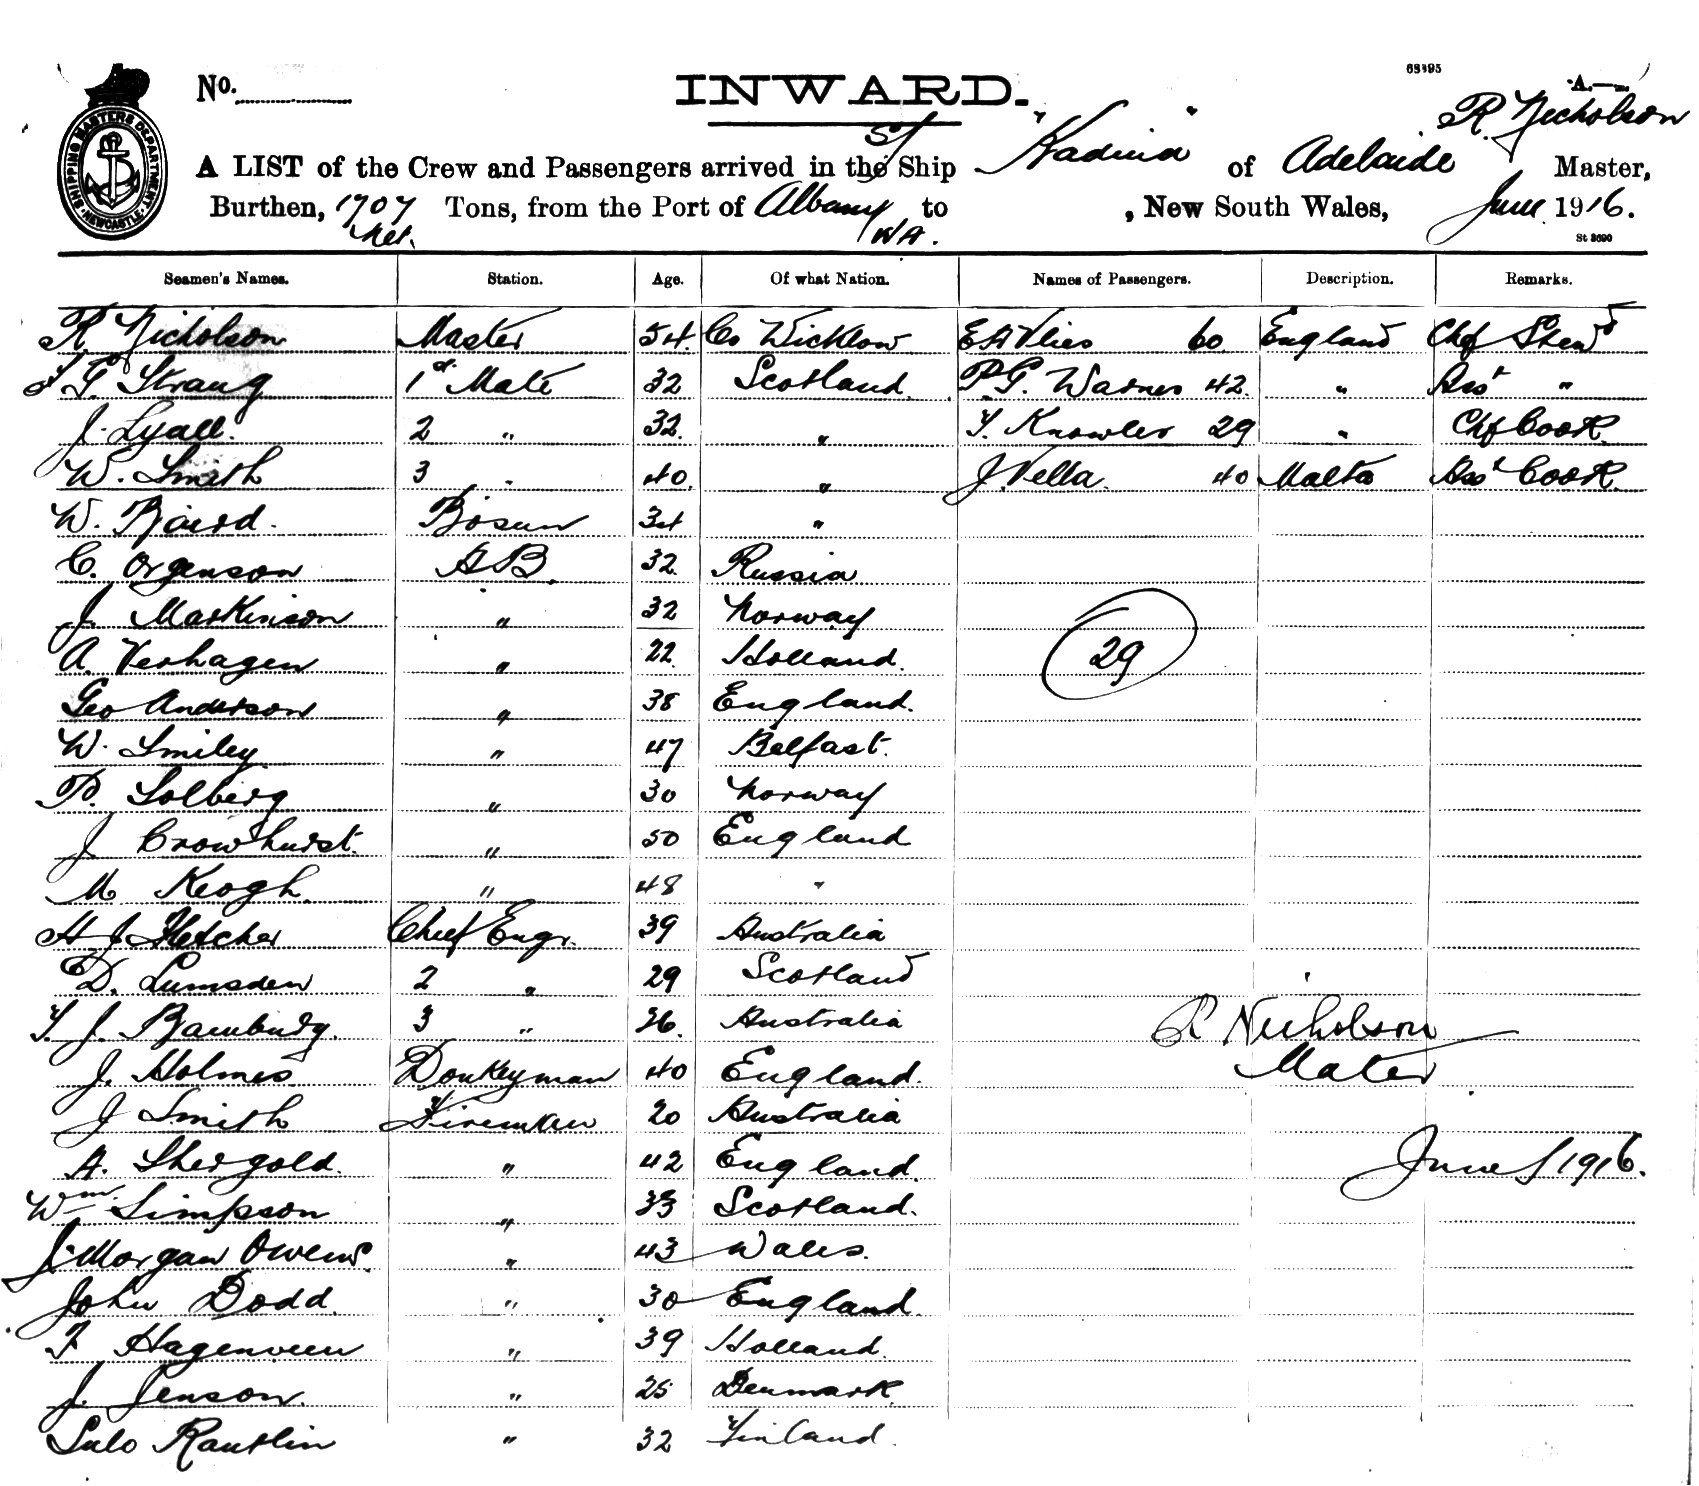 68395
No.
INWARD.
A.
R. Nicholson
A LIST of the Crew and Passengers arrived in the St Ship "Kadina" of Adelaide Master,
Burthen, 1707 Tons, from the Port of Albany to , New South Wales, June 1916.
Net. WA.
St 3690
SHIPPING MASTERS DEPARTMENT NEWCASTLE
Seamen's Names. Station. Age. Of what Nation. Names of Passengers. Description. Remarks.
R. Nicholson Master 54. Co Wicklow 60 England Chf Stewd
G. Strang 1st Mate 32 Scotland P.G. Warnes 42. " Asst "
J. Lyall. 2 " 32. " Knowler 29 " Chf Cook
W. Smith 3 " 40. " J. Vella. 40 Malta Asst Cook.
W. Baird. Bosun 34 "
C. Orgenson AB. 32. Russia
J. Markinson " 32 Norway
A. Verhagen " 22 Holland. 29
Geo Anderson " 38 England.
W. Smiley. " 47 Belfast.
P. Solberg " 30 Norway
J Crowhurst. " 50 England
M Keogh. " 48 "
H J Fletcher Chief Engr. 39 Australia
D. Lumsden 2 " 29 Scotland
J. Bamburg. 3 " 36. Australia R Nicholson
J. Holmes Donkeyman 40 England. Mater
J Smith Firemken 20 Australia
A. Shergold. " 42 England. June 1916.
Wm Simpson " 33 Scotland.
J. Morgan Owens. " 43 Wales.
John Dodd. " 30 England.
F Hagenveen " 39 Holland.
J. Jenson. " 25 Denmark.
Sulo Rautlin " 32 Finland.